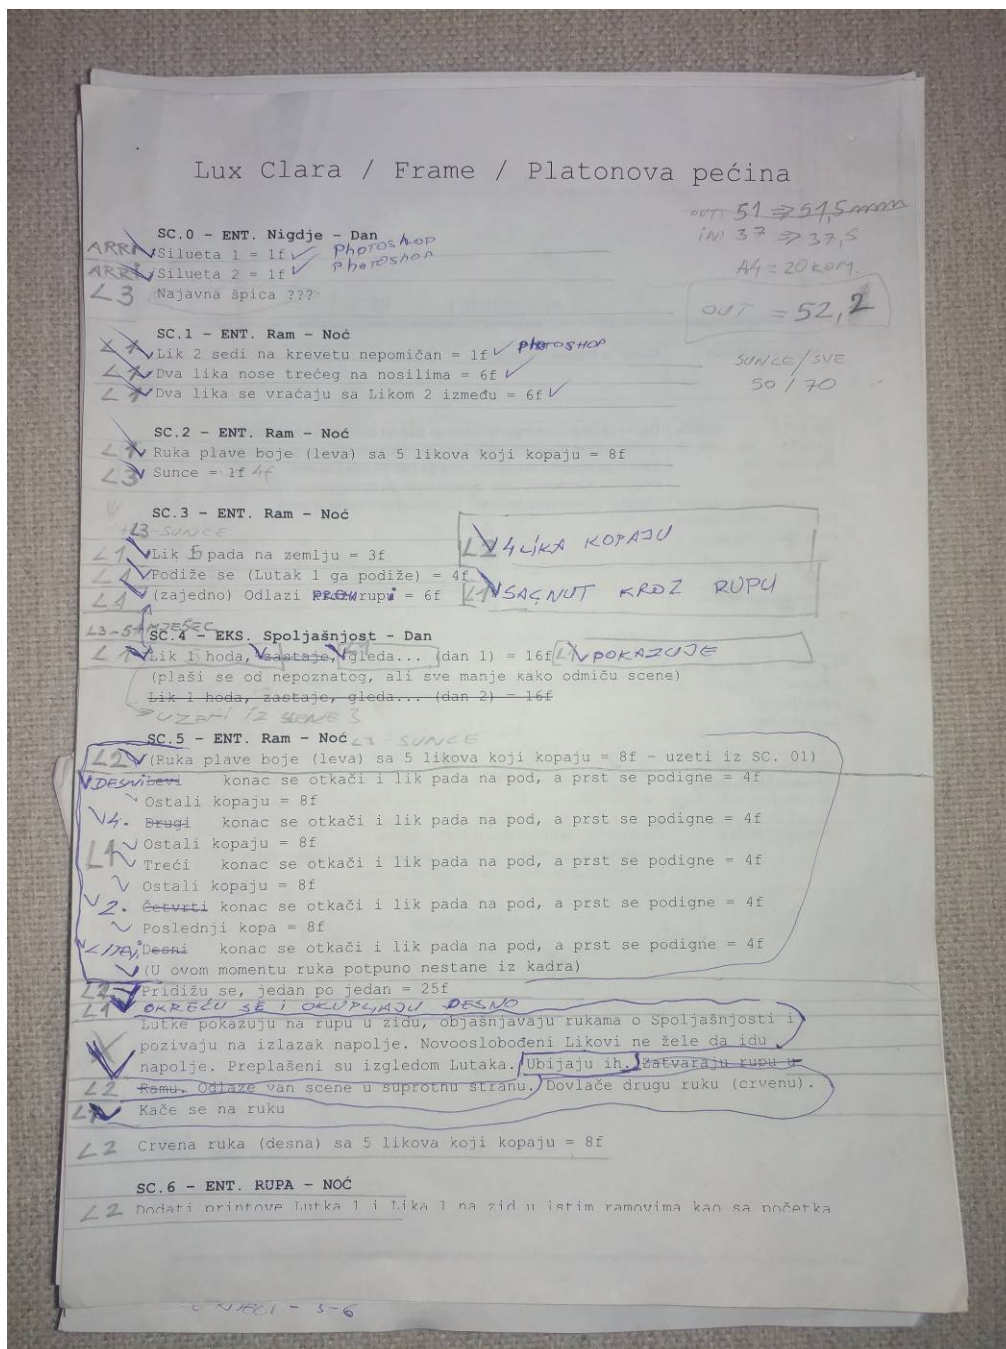 Lux Clara / Frame / Platonova pećina
OUT: 51 => 51,5mm
IN: 37 => 37,5
A4 = 20 kom.
OUT = 52,2
SUNCE/SVE
50 / 70
SC.0 - ENT. Nigdje - Dan
ARRI Silueta 1 = 1f PHOTOSHOP
ARRI Silueta 2 = 1f PHOTOSHOP
L3 Najavna špica ???
SC.1 - ENT. Ram - Noć
Lik 2 sedi na krevetu nepomičan = 1f PHOTOSHOP
L1 Dva lika nose trećeg na nosilima = 6f
L1 Dva lika se vraćaju sa Likom 2 između = 6f
SC.2 - ENT. Ram - Noć
L1 Ruka plave boje (leva) sa 5 likova koji kopaju = 8f
L3 Sunce = 1f 4f
SC.3 - ENT. Ram - Noć
+L3 - SUNCE
L1 Lik 5 pada na zemlju = 3f
L2 4 LIKA KOPAJU
L1 Podiže se (Lutak 1 ga podiže) = 4f
L1 (zajedno) Odlazi rupi = 6f
L1 SAGNUT KROZ RUPU
SC.4 - EKS. Spoljašnjost - Dan
L1 Lik 1 hoda, zastaje, gleda... (dan 1) = 16f L1 POKAZUJE
(plaši se od nepoznatog, ali sve manje kako odmiču scene)
Lik 1 hoda, zastaje, gleda... (dan 2) = 16f
UZETI IZ SCENE 3
SC.5 - ENT. Ram - Noć L3 - SUNCE
L2 (Ruka plave boje (leva) sa 5 likova koji kopaju = 8f - uzeti iz SC. 01)
DESNI Levi konac se otkači i lik pada na pod, a prst se podigne = 4f
Ostali kopaju = 8f
4. Drugi konac se otkači i lik pada na pod, a prst se podigne = 4f
Ostali kopaju = 8f
L1 Treći konac se otkači i lik pada na pod, a prst se podigne = 4f
Ostali kopaju = 8f
2. Četvrti konac se otkači i lik pada na pod, a prst se podigne = 4f
Poslednji kopa = 8f
Desni konac se otkači i lik pada na pod, a prst se podigne = 4f
(U ovom momentu ruka potpuno nestane iz kadra)
Pridižu se, jedan po jedan = 25f
L1 OKREĆU SE I OKUPLJAJU DESNO
Lutke pokazuju na rupu u zidu, objašnjavaju rukama o Spoljašnjosti i
pozivaju na izlazak napolje. Novooslobođeni Likovi ne žele da idu
napolje. Preplašeni su izgledom Lutaka. Ubijaju ih. Zatvaraju rupu u
L2 Ramu. Odlaze van scene u suprotnu stranu. Dovlače drugu ruku (crvenu).
Kače se na ruku
L2 Crvena ruka (desna) sa 5 likova koji kopaju = 8f
SC.6 - ENT. RUPA - NOĆ
L2 Dodati printove Lutka 1 i Lika 1 na zid u istim ramovima kao sa početka
- 5-6